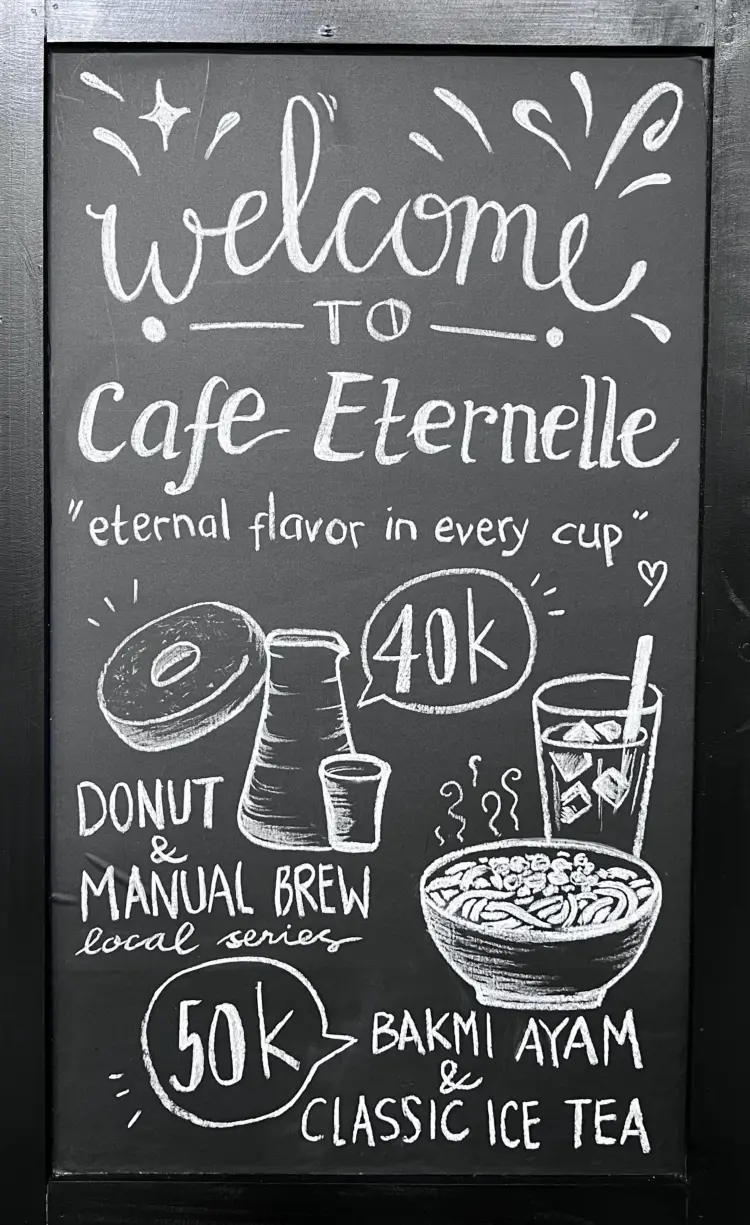 welcome
TO
Cafe Eternelle
"eternal flavor in every cup"
40k
DONUT
&
MANUAL BREW
local series
50k
BAKMI AYAM
&
CLASSIC ICE TEA